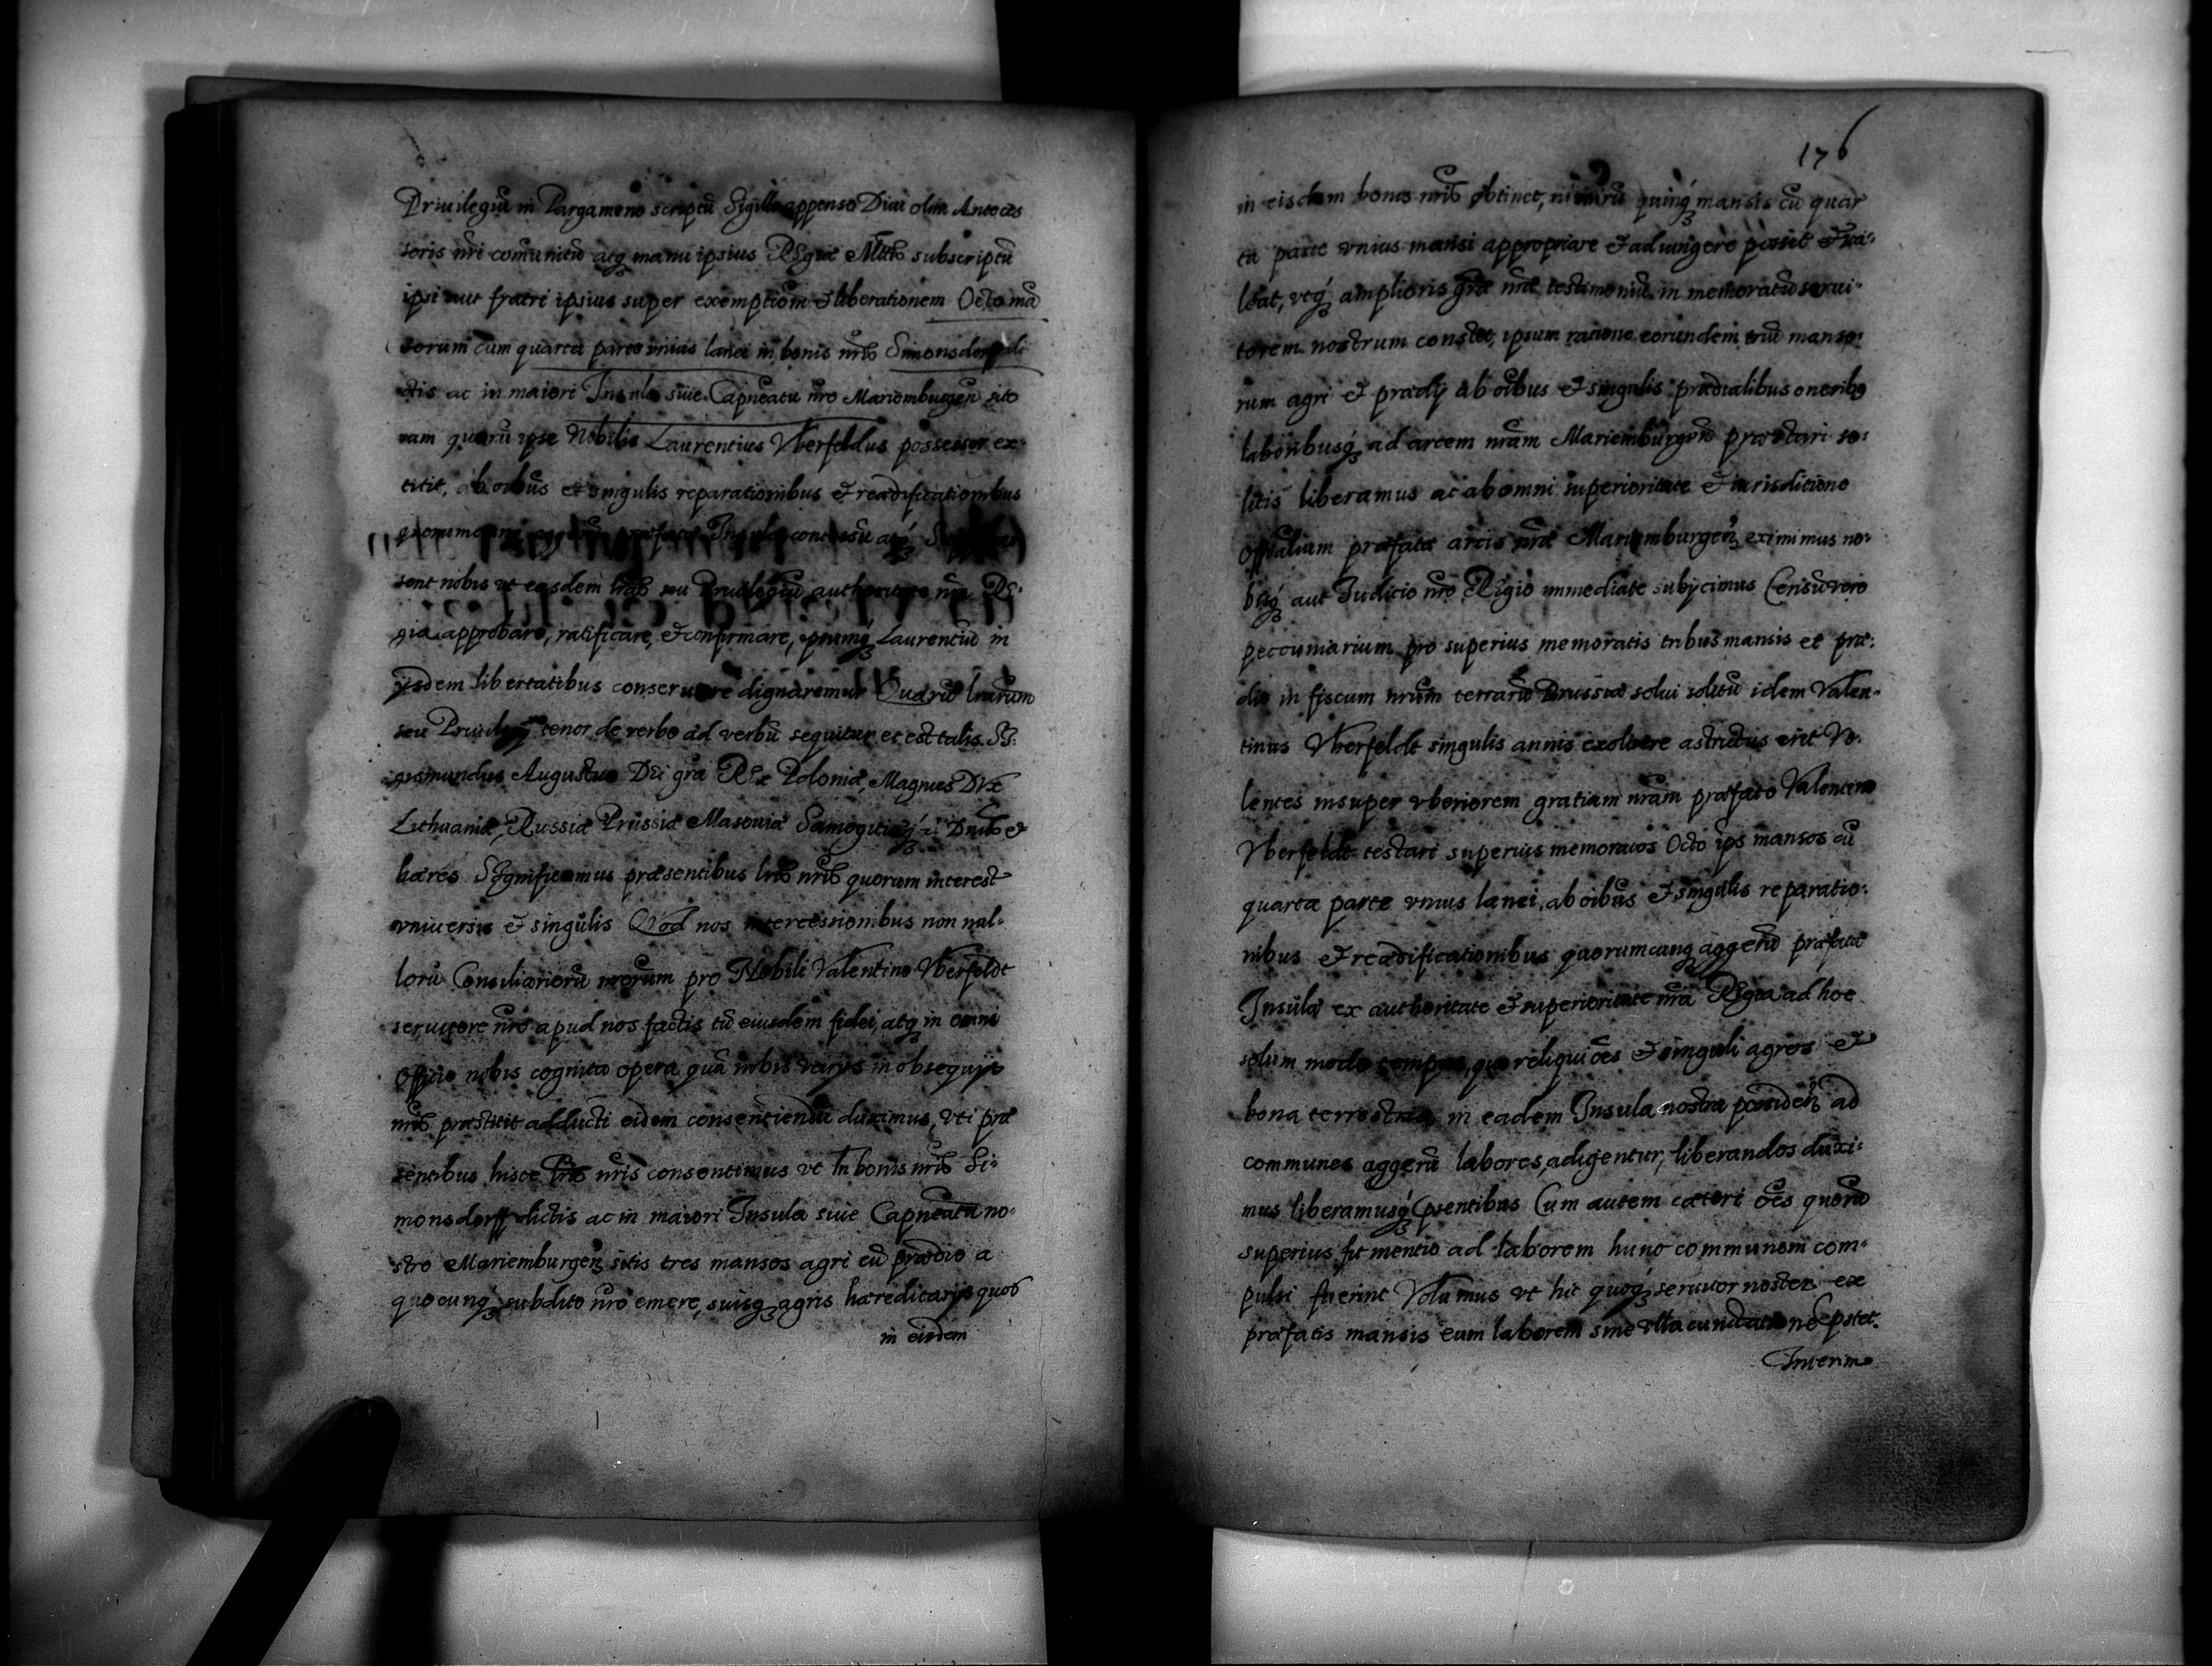 Priuilegiū in Pargameno scriptū Sigillo appenso Diui olim Anteces
soris nr̄i com̄unitū atq₃ manu ipsius Regiæ Mtt̄is subscriptū
ipsi aut fratri ipsius super exemptiom̄ & liberationem Octo mā
sorum cum quarta parte vnius lanei in bonis nr̄is Simonsdorff di
ctis ac in maiori Insula siue Capneatu nr̄o Mariemburgeñ sito
rum quorū ipse Nobilis Laurentius Vberfeldus possessor ex-
titit, ab oībus et singulis reparationibus & readificationibus
præfatæ Insulæ atq́₃
sent nobis vt easdem lrās seu Priuilegiū authoritate nr̄a Re-
gia approbare, ratificare, & confirmare, ipsumq₃ Laurentiū in
ijsdem libertatibus conseruare dignaremur Quarū lr̄arum
seu Priuilegij tenor de verbo ad verbū sequitur et est talis. Si-
gismundus Augustus Dei grā Rex Poloniæ, Magnus Dux
Lithuaniæ, Russiæ Prussiæ Masouiæ Samogitiæq́₃ Dn̄us &
hæres Significamus præsentibus lrīs nr̄is quorum interest
vniuersis & singulis Quod nos intercessionibus non nul-
lorū Consiliariorū nr̄orum pro Nobili Valentino Vberfeldt
seruitore nr̄o apud nos factis tū eiusdem fidei, atq₃ in omni
Officio nobis cognita opera quā nobis varijs in obsequijs
nr̄is præstitit adducti eidem consentiendū duximus, vti præ
sentibus hisce lrīs nr̄is consentimus vt In bonis nr̄is Si-
monsdorff dictis ac in maiori Insula siue Capneatu no-
stro Mariemburgeñ sitis tres mansos agri cū prædio a
quocunq₃ subdito nr̄o emere, suisq₃ agris hæreditarijs quos
in eisdem
176
in eisdem bonis nr̄is obtinet, nimirū quinq₃ mansis cū quar
ta parte vnius mansi appropriare & adiungere possit & va-
leat, vtq́₃ amplioris grāe nr̄æ testimoniū in memoratū serui-
torem nostrum constet, ipsum ratione eorundem triū manso-
rum agri & prædij ab oībus & singulis prædialibus oneribs
laboribusq́₃ ad arcem nr̄am Mariemburgeñ præstari so-
litis liberamus ac ab omni superioritate & iurisdictione
Offic̄alium præfatæ arcis nr̄æ Mariemburgeñ, eximimus no-
bisq́₃ aut Iudicio nr̄o Regio immediate subijcimus Censū vero
peccuniarium pro superius memoratis tribus mansis et præ-
dio in fiscum nr̄um terrarū Prussiæ solui solitū idem Valen-
tinus Vberfeldt singulis annis exoluere astrictus erit Vo-
lentes insuper vberiorem gratiam nr̄am præfato Valentino
Vberfeldt testari superius memoratos Octo ips mansos cū
quarta parte vnius lanei, ab oībus & singulis reparatio-
nibus & readificationibus quorumcunq₃ aggerū præfatæ
Insulæ ex authoritate & superioritate nr̄a Regia ad hoc
solum modo tempus, quo reliqui oēs & singuli agros &
bona terrestria in eadem Insula nostra possideñ ad
communes aggerū labores, adigentur, liberandos duxi-
mus liberamusq́₃ p̄sentibus Cum autem cæteri oēs quorū
superius fit mentio ad laborem hunc communem com-
pulsi fuerint Volumus vt hic quoq́₃ seruitor noster ex
præfatis mansis eum laborem sine vlla cunctatione p̄stet.
Interim